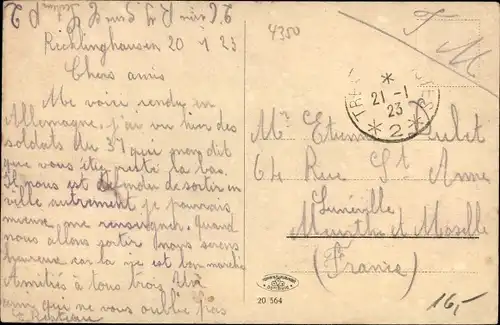 Recklinghausen 20 1 23
Chers amis
Me voire rendu en
Allemagne, j'ai vu hier des
soldats du 37 qui m'on dit
que vous étiez resté la bas.
Il nous est de sortir en
ville autrement je pourrais
mieux me renseigner. Quand
nous allons sortir nous serons
heureux car la vie est bon marché
Amitiés à tous trois
ami qui ne vous oublie pas
4350
F M
21 - 1
23
* 2 *
Mr Etienne
64 Rue St Anne
Lunéville
Meurthe et Moselle
(France)
20 564
16,-